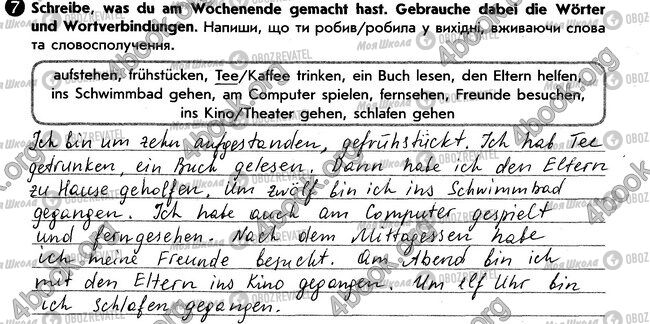 7 Schreibe, was du am Wochenende gemacht hast. Gebrauche dabei die Wörter
und Wortverbindungen. Напиши, що ти робив/робила у вихідні, вживаючи слова
та словосполучення.
aufstehen, frühstücken, Tee/Kaffee trinken, ein Buch lesen, den Eltern helfen,
ins Schwimmbad gehen, am Computer spielen, fernsehen, Freunde besuchen,
ins Kino/Theater gehen, schlafen gehen
Ich bin um zehn aufgestanden, gefrühstückt. Ich hab Tee
getrunken, ein Buch gelesen. Dann habe ich den Eltern
zu Hause geholfen. Um zwölf bin ich ins Schwimmbad
gegangen. Ich habe auch am Computer gespielt
und ferngesehen. Nach dem Mittagessen habe
ich meine Freunde besucht. Am Abend bin ich
mit den Eltern ins Kino gegangen. Um elf Uhr bin
ich schlafen gegangen.